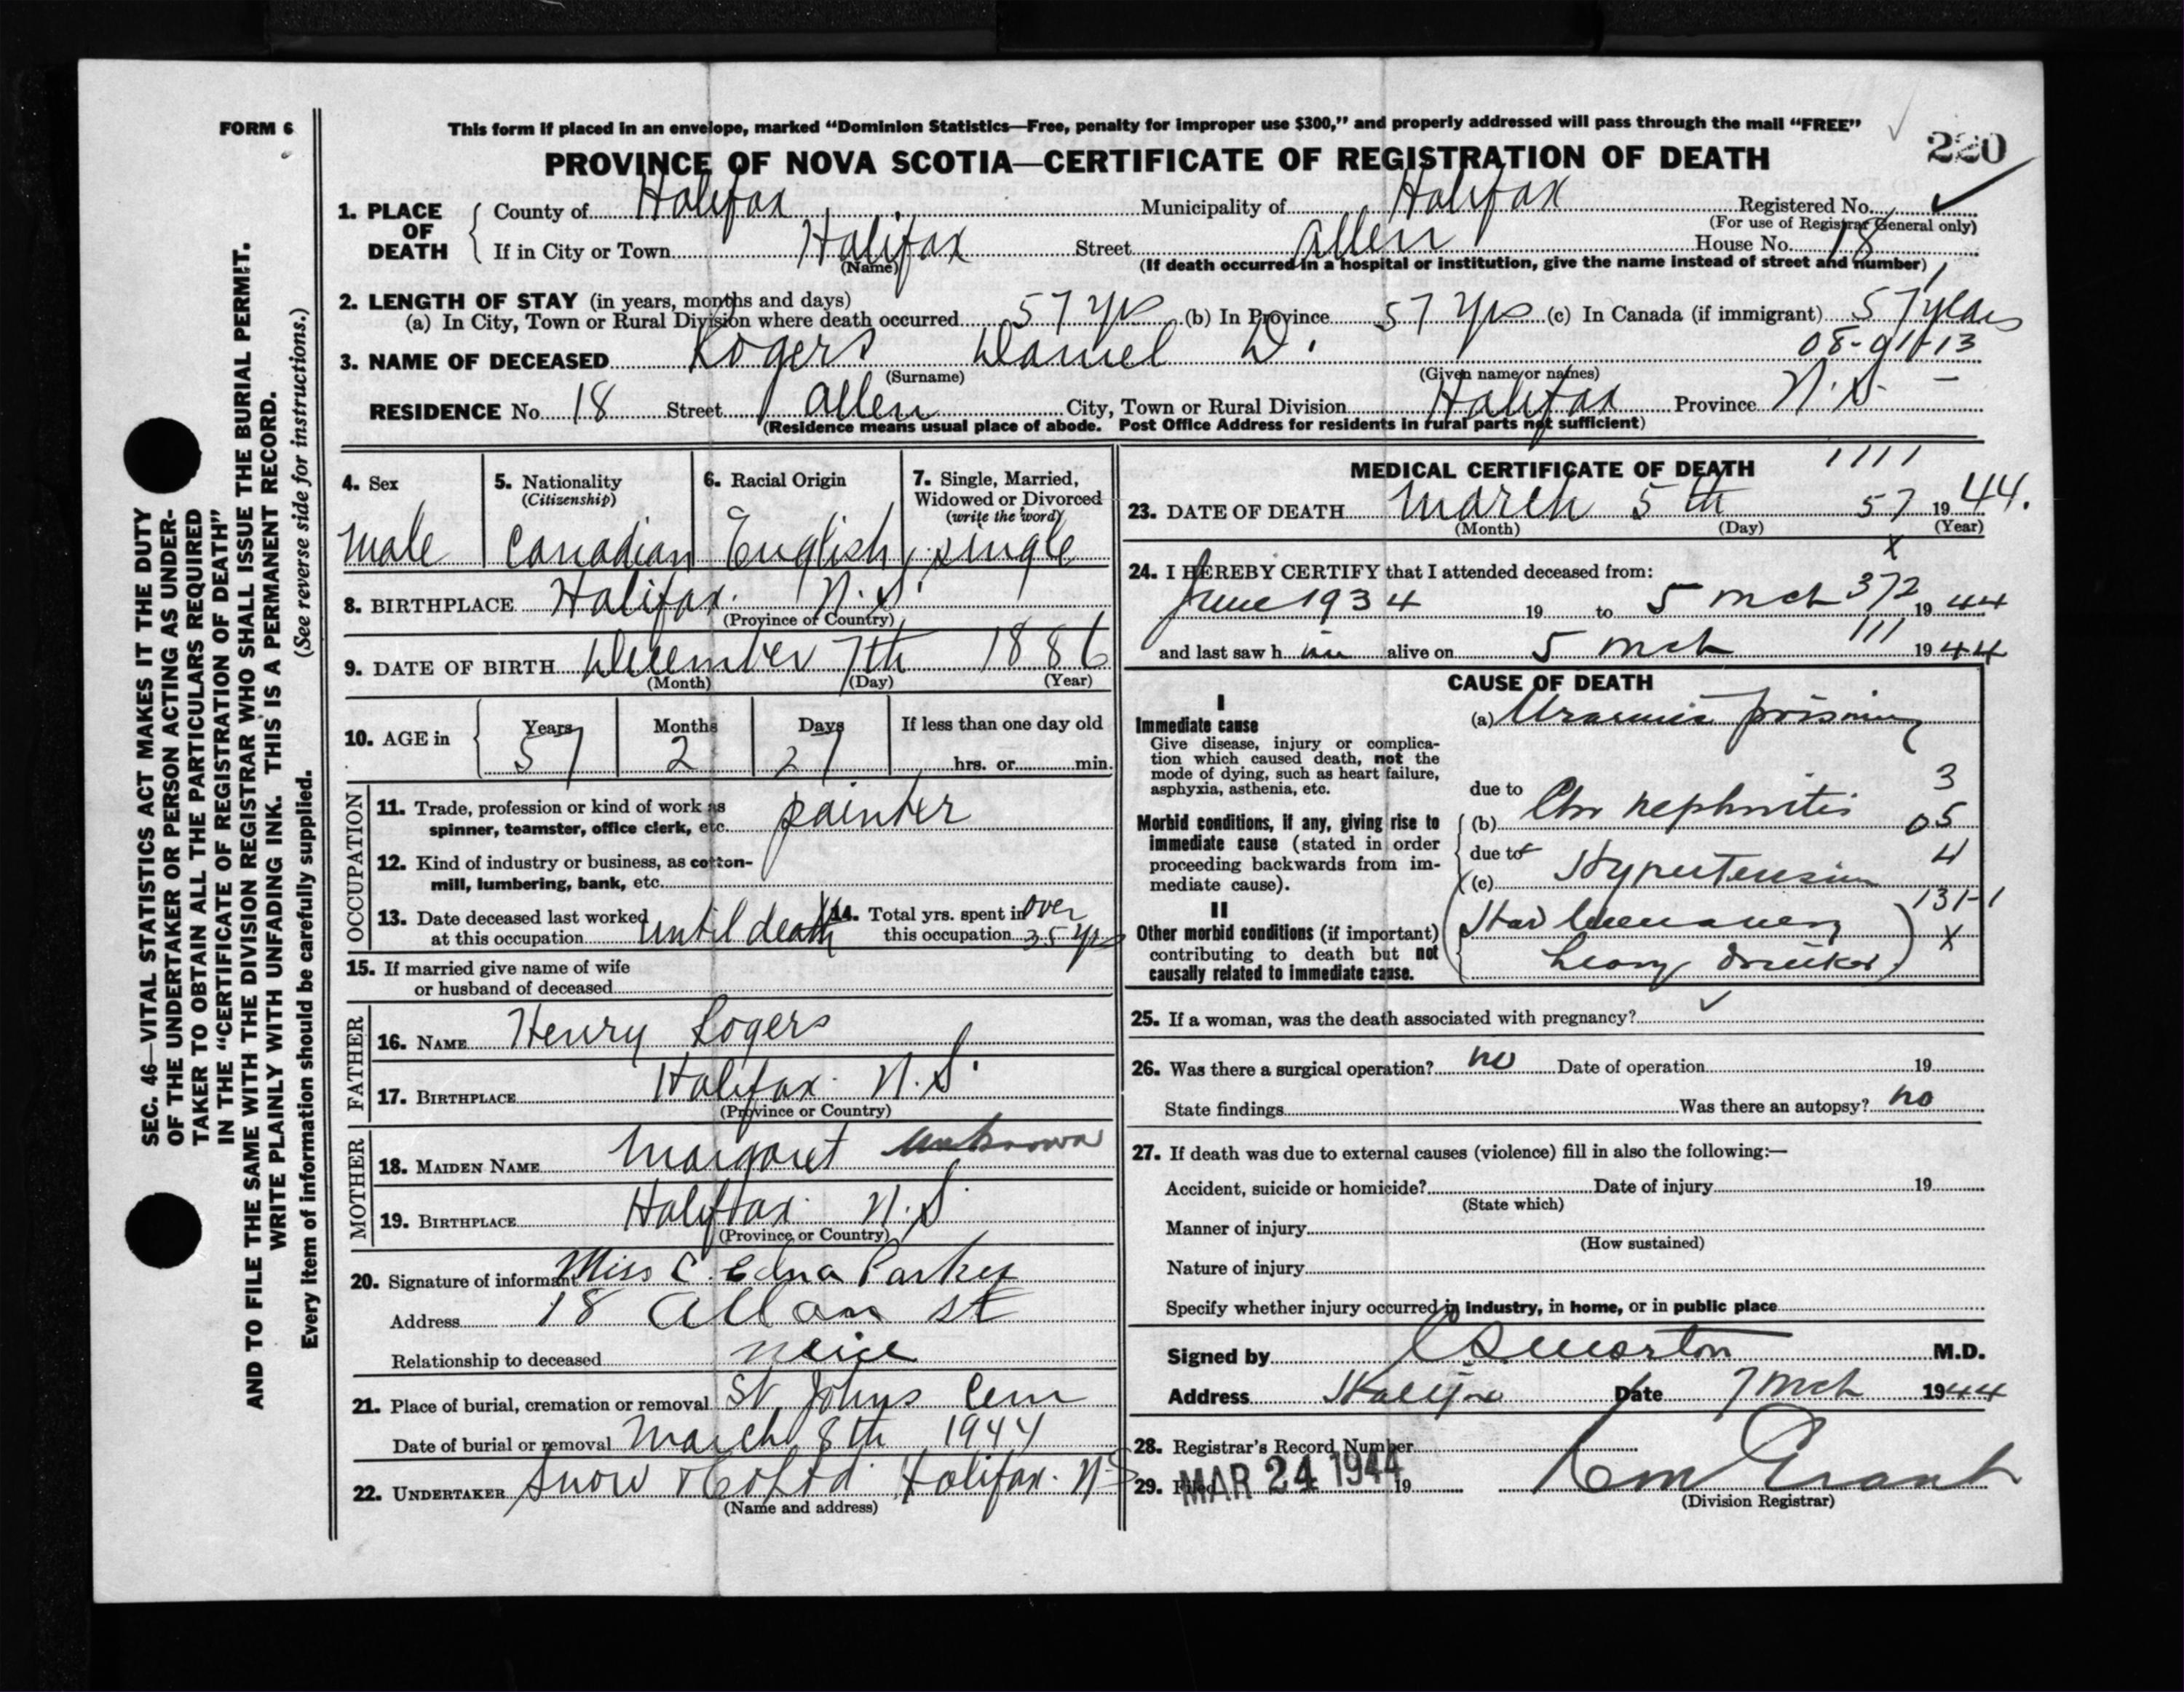 FORM 6
This form if placed in an envelope, marked “Dominion Statistics—Free, penalty for improper use $300,” and properly addressed will pass through the mail “FREE”
220
PROVINCE OF NOVA SCOTIA—CERTIFICATE OF REGISTRATION OF DEATH
1. PLACE OF DEATH County of Halifax Municipality of Halifax Registered No.
(For use of Registrar General only)
If in City or Town Halifax Street Allen House No. 18
(Name) (If death occurred in a hospital or institution, give the name instead of street and number)
2. LENGTH OF STAY (in years, months and days)
(a) In City, Town or Rural Division where death occurred 57 yrs (b) In Province 57 yrs (c) In Canada (if immigrant) 57 years
3. NAME OF DECEASED Rogers Daniel D. 08-911-13
(Surname) (Given name or names)
RESIDENCE No. 18 Street Allen City, Town or Rural Division Halifax Province N.S. —
(Residence means usual place of abode. Post Office Address for residents in rural parts not sufficient)
4. Sex
male
5. Nationality
(Citizenship)
Canadian
6. Racial Origin
English
7. Single, Married,
Widowed or Divorced
(write the word)
single
8. BIRTHPLACE Halifax. N.S.
(Province or Country)
9. DATE OF BIRTH December 7th 1886
(Month) (Day) (Year)
10. AGE in Years 57 Months 2 Days 27 If less than one day old
hrs. or min.
OCCUPATION
11. Trade, profession or kind of work as
spinner, teamster, office clerk, etc. painter
12. Kind of industry or business, as cotton-
mill, lumbering, bank, etc.
13. Date deceased last worked
at this occupation until death
14. Total yrs. spent in
this occupation over 35 yrs
15. If married give name of wife
or husband of deceased
FATHER
16. NAME Henry Rogers
17. BIRTHPLACE Halifax. N.S.
(Province or Country)
MOTHER
18. MAIDEN NAME Margaret unknown
19. BIRTHPLACE Halifax. N.S.
(Province or Country)
20. Signature of informant Miss C. Edna Parker
Address 18 Allan st
Relationship to deceased neice
21. Place of burial, cremation or removal St Johns Cem
Date of burial or removal March 8th 1944
22. UNDERTAKER Snow & Co Ltd. Halifax. N.S
(Name and address)
MEDICAL CERTIFICATE OF DEATH 1111
23. DATE OF DEATH March 5th 57 1944.
(Month) (Day) (Year)
x
24. I HEREBY CERTIFY that I attended deceased from:
June 1934 19 to 5 Mch 372 1944
111
and last saw h im alive on 5 Mch 1944
CAUSE OF DEATH
I
Immediate cause
Give disease, injury or complica-
tion which caused death, not the
mode of dying, such as heart failure,
asphyxia, asthenia, etc.
(a) Uraemic poisoning
due to
3
Morbid conditions, if any, giving rise to
immediate cause (stated in order
proceeding backwards from im-
mediate cause).
(b) Chr nephritis 05
due to 4
(c) Hypertension
131-1
II
Other morbid conditions (if important)
contributing to death but not
causally related to immediate cause.
x
heavy drinker
25. If a woman, was the death associated with pregnancy?
26. Was there a surgical operation? no Date of operation 19
State findings Was there an autopsy? no
27. If death was due to external causes (violence) fill in also the following:—
Accident, suicide or homicide? Date of injury 19
(State which)
Manner of injury
(How sustained)
Nature of injury
Specify whether injury occurred in industry, in home, or in public place
Signed by C S Morton M.D.
Address Halifax Date 7 Mch 1944
28. Registrar's Record Number
29. Filed MAR 24 1944 19
Grant
(Division Registrar)
SEC. 46—VITAL STATISTICS ACT MAKES IT THE DUTY
OF THE UNDERTAKER OR PERSON ACTING AS UNDER-
TAKER TO OBTAIN ALL THE PARTICULARS REQUIRED
IN THE “CERTIFICATE OF REGISTRATION OF DEATH”
AND TO FILE THE SAME WITH THE DIVISION REGISTRAR WHO SHALL ISSUE THE BURIAL PERMIT.
WRITE PLAINLY WITH UNFADING INK. THIS IS A PERMANENT RECORD.
Every item of information should be carefully supplied. (See reverse side for instructions.)